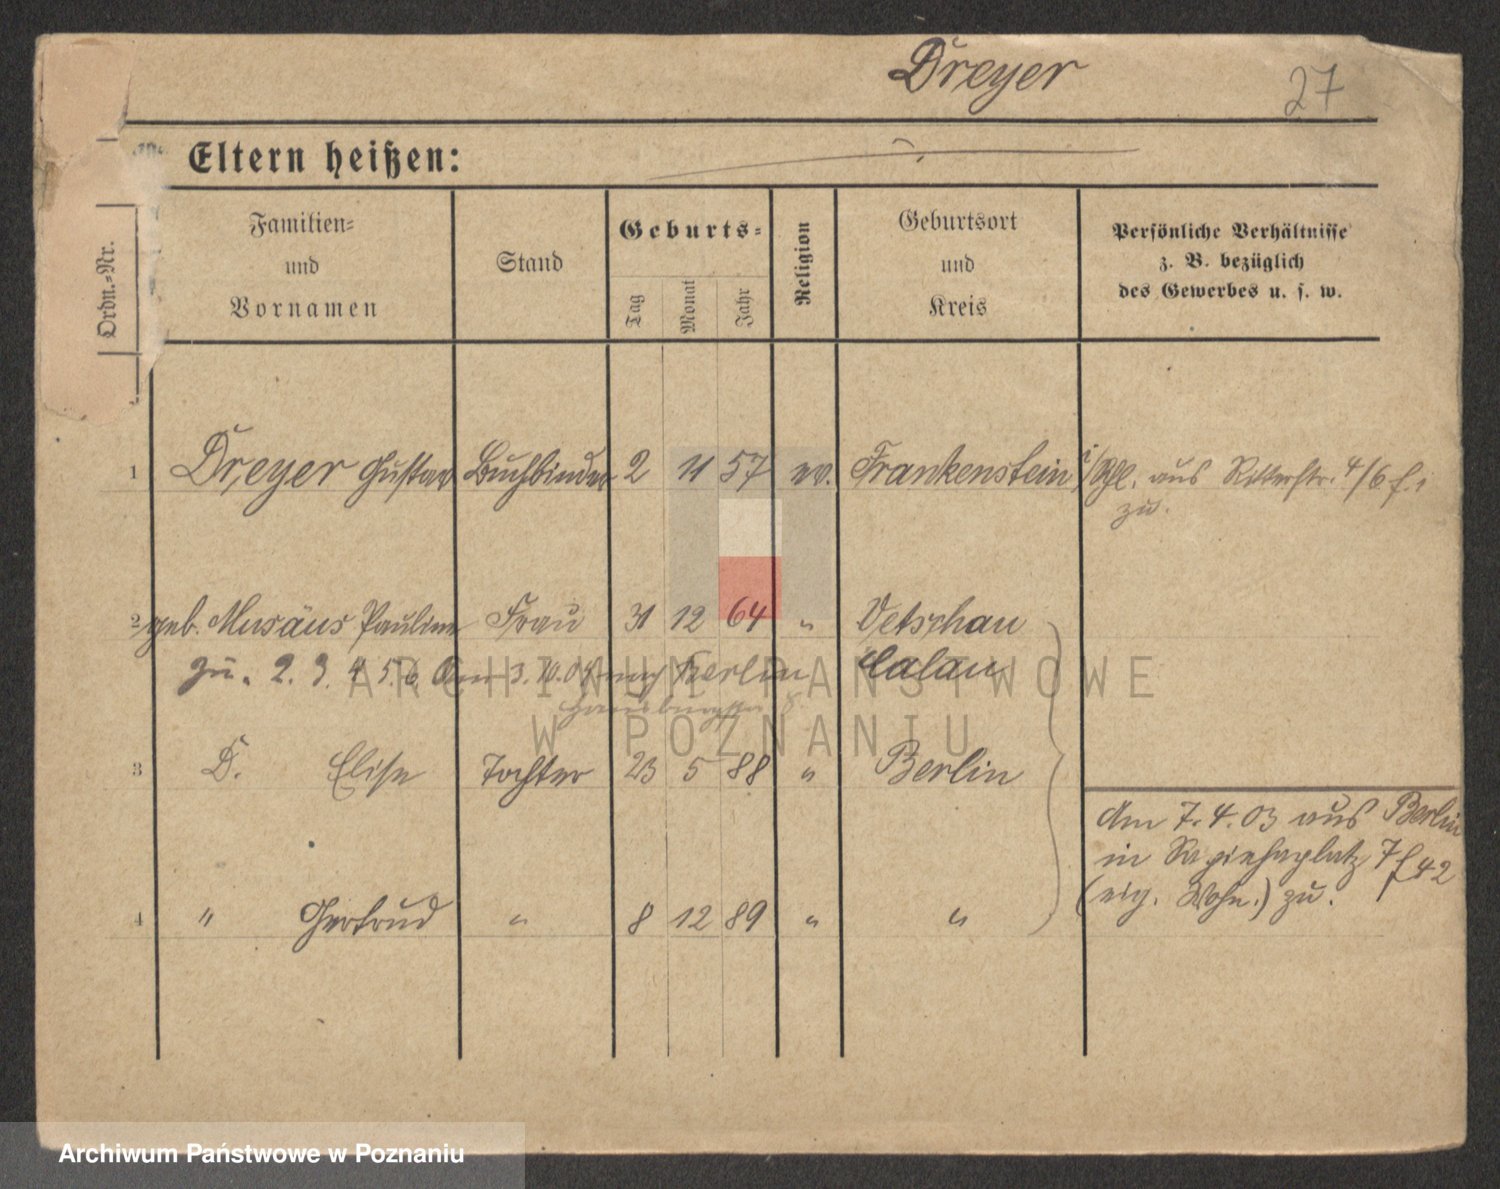 Dreyer
27
Eltern heißen:
Ordn.-Nr.
Familien-
und
Vornamen
Stand
Geburts-
Tag
Monat
Jahr
Religion
Geburtsort
und
Kreis
Persönliche Verhältnisse
z. B. bezüglich
des Gewerbes u. s. w.
1 Dreyer Gustav Buchbinder 2 11 57 ev. Frankenstein i/Schl. aus Ritterstr. 4/6
zu.
2 geb. Musäus Pauline Frau 31 12 64 " Vetschau
zu. 2. 3. 4 5. 6 Am 3. 10. 04 nach Berlin Calau
3 D. Elise Tochter 23 5 88 " Berlin
Am 7. 4. 03 aus Berlin
in Sapiehaplatz 7 f 42
(eig. Wohn.) zu.
4 " Gertrud " 8 12 89 " "
ARCHIWUM PAŃSTWOWE
W POZNANIU
Archiwum Państwowe w Poznaniu